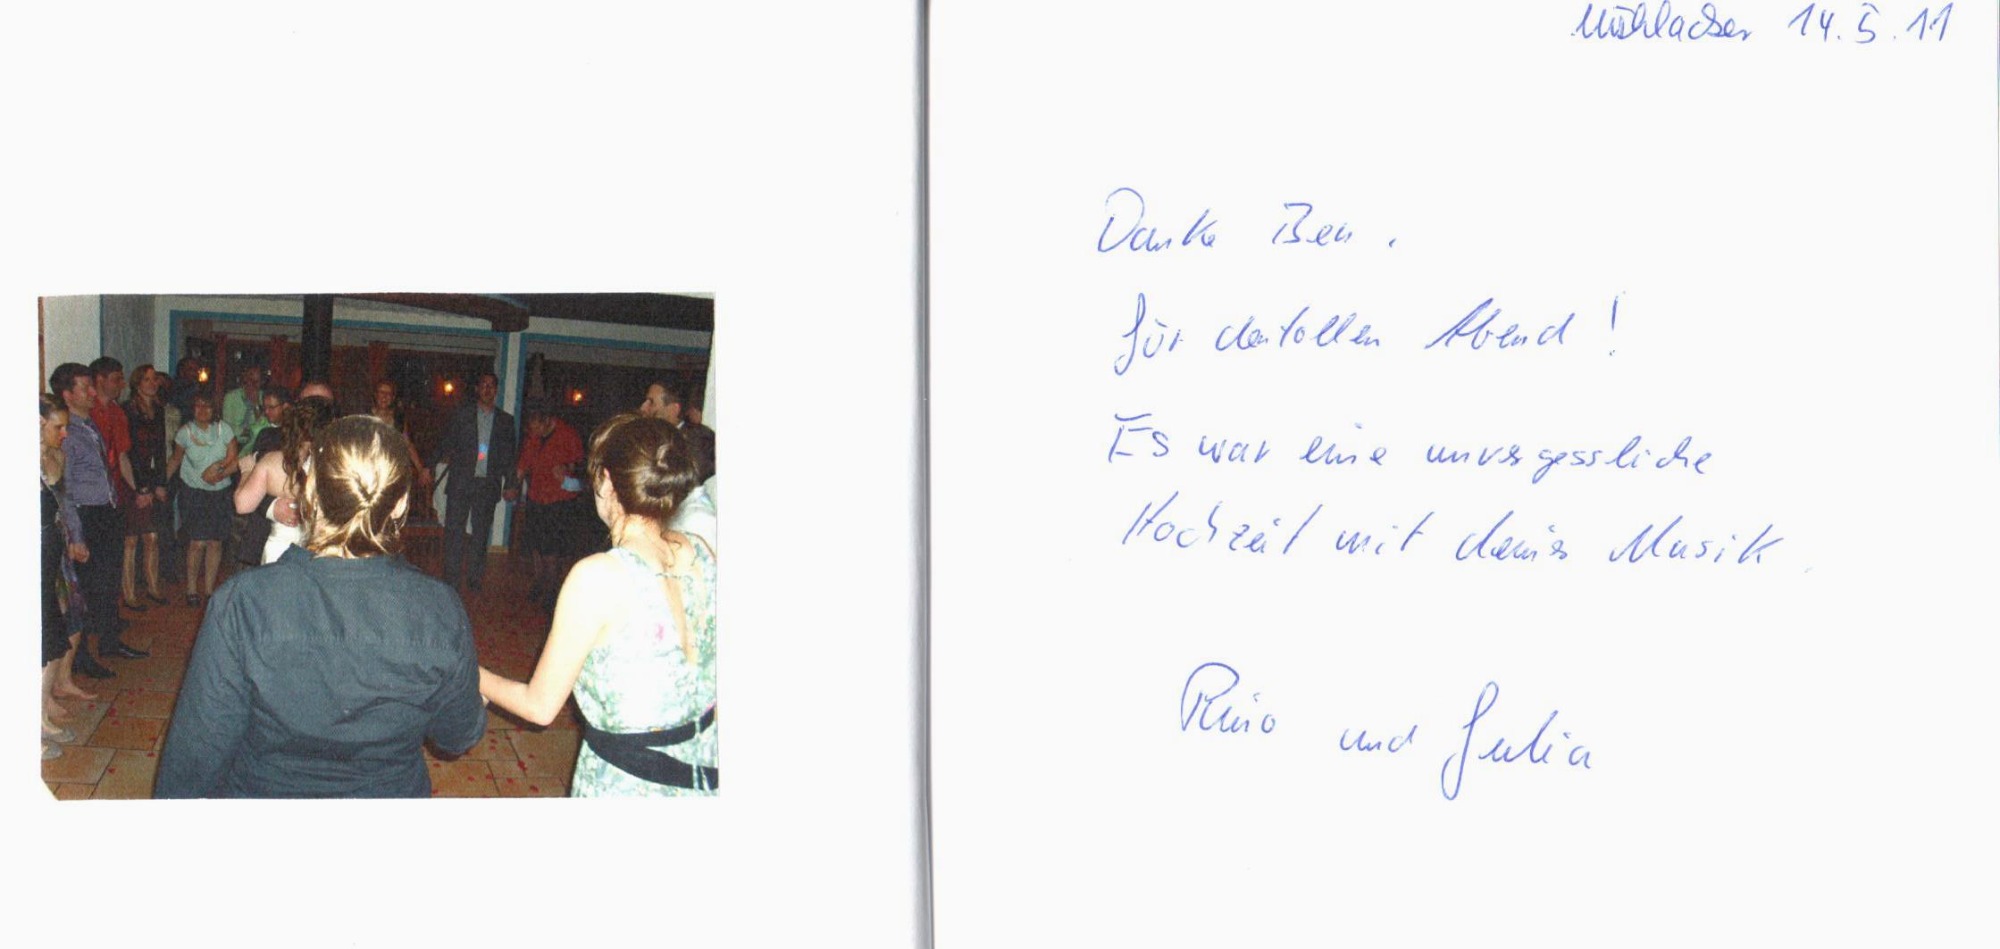 Mühlacker 14.5.11
Danke Ben.
für den tollen Abend!
Es war eine unvergessliche
Hochzeit mit deiner Musik.
und Julia